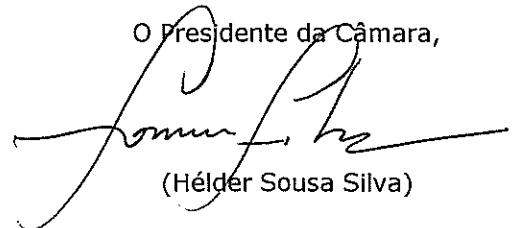 O Presidente da Câmara,
(Hélder Sousa Silva)